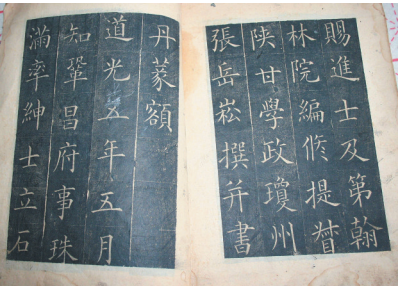 賜進士及第翰
林院編修提督
陝甘學政瓊州
張岳崧撰并書
丹篆額
道光五年五月
知鞏昌府事珠
滿率紳士立石